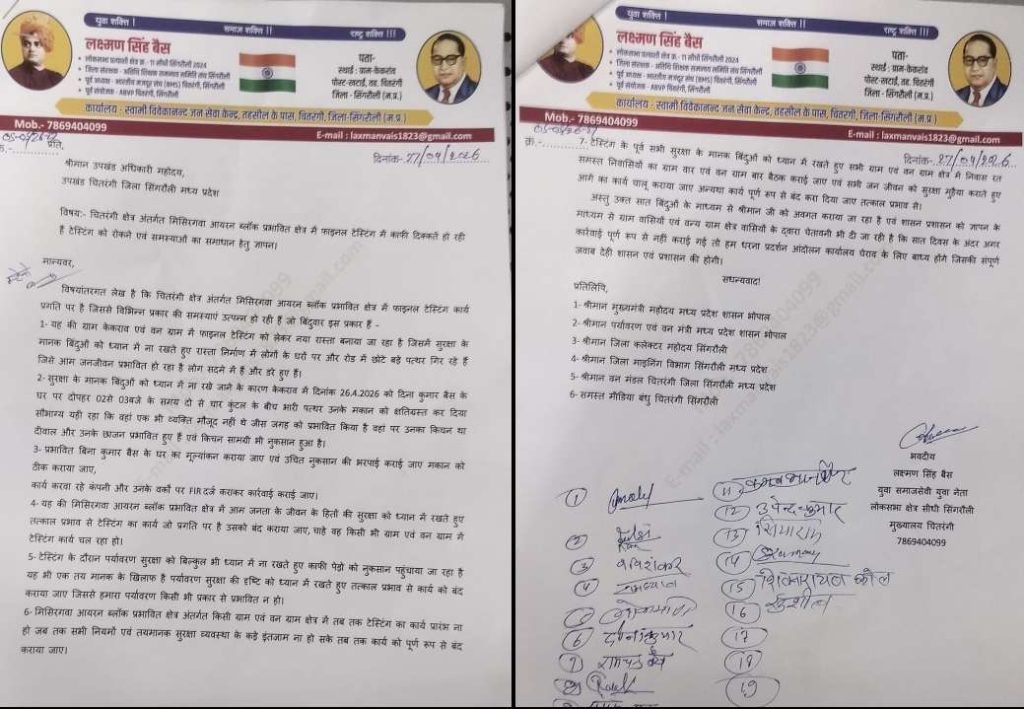 युवा शक्ति !
समाज शक्ति !!
राष्ट्र शक्ति !!!
लक्ष्मण सिंह बैस
• लोकसभा प्रत्याशी क्षेत्र क्र. - 11 सीधी सिंगरौली 2024
• जिला संरक्षक - अतिथि शिक्षक समन्वय समिति संघ सिंगरौली
• पूर्व अध्यक्ष - भारतीय मजदूर संघ (BMS) चितरंगी, सिंगरौली
• पूर्व संयोजक - ABVP चितरंगी, सिंगरौली
पता-
स्थाई : ग्राम-केकराव
पोस्ट-खटाई, तह. चितरंगी
जिला - सिंगरौली (म.प्र.)
कार्यालय - स्वामी विवेकानन्द जन सेवा केन्द्र, तहसील के पास, चितरंगी, जिला-सिंगरौली (म.प्र.)
Mob.- 7869404099
E-mail : laxmanvais1823@gmail.com
क्र.-
प्रति,
दिनांक- 27/04/2026
श्रीमान उपखंड अधिकारी महोदय,
उपखंड चितरंगी जिला सिंगरौली मध्य प्रदेश
विषय:- चितरंगी क्षेत्र अंतर्गत मिसिरगवा आयरन ब्लॉक प्रभावित क्षेत्र में फाइनल टेस्टिंग में काफी दिक्कते हो रही
है टेस्टिंग को रोकने एवं समस्याओं का समाधान हेतु ज्ञापन।
मान्यवर,
विषयांतरगत लेख है कि चितरंगी क्षेत्र अंतर्गत मिसिरगवा आयरन ब्लॉक प्रभावित क्षेत्र में फाइनल टेस्टिंग कार्य
प्रगति पर है जिससे विभिन्न प्रकार की समस्याएं उत्पन्न हो रही हैं जो बिंदुवार इस प्रकार हैं -
1- यह की ग्राम केकराव एवं वन ग्राम में फाइनल टेस्टिंग को लेकर नया रास्ता बनाया जा रहा है जिसमें सुरक्षा के
मानक बिंदुओं को ध्यान में ना रखते हुए रास्ता निर्माण में लोगों के घरों पर और रोड में छोटे बड़े पत्थर गिर रहे हैं
जिसे आम जनजीवन प्रभावित हो रहा है लोग सदमे में हैं और डरे हुए हैं।
2- सुरक्षा के मानक बिंदुओं को ध्यान में ना रखे जाने के कारण केकराव में दिनांक 26.4.2026 को दिना कुमार बैस के
घर पर दोपहर 02से 03बजे के समय दो से चार कुंटल के बीच भारी पत्थर उनके मकान को क्षतिग्रस्त कर दिया
सौभाग्य यही रहा कि वहां एक भी व्यक्ति मौजूद नहीं थे जीस जगह को प्रभावित किया है वहां पर उनका किचन था
दीवाल और उनके छाजन प्रभावित हुए हैं एवं किचन सामग्री भी नुकसान हुआ है।
3- प्रभावित बिना कुमार बैस के घर का मूल्यांकन कराया जाए एवं उचित नुकसान की भरपाई कराई जाए मकान को
ठीक कराया जाए,
कार्य करवा रहे कंपनी और उनके वर्को पर FIR दर्ज कराकर कार्रवाई कराई जाए।
4- यह की मिसिरगवा आयरन ब्लॉक प्रभावित क्षेत्र में आम जनता के जीवन के हितों की सुरक्षा को ध्यान में रखते हुए
तत्काल प्रभाव से टेस्टिंग का कार्य जो प्रगति पर है उसको बंद कराया जाए, चाहे वह किसी भी ग्राम एवं वन ग्राम में
टेस्टिंग कार्य चल रहा हो।
5- टेस्टिंग के दौरान पर्यावरण सुरक्षा को बिल्कुल भी ध्यान में ना रखते हुए काफी पेड़ो को नुकसान पहुंचाया जा रहा है
यह भी एक तय मानक के खिलाफ है पर्यावरण सुरक्षा की दृष्टि को ध्यान में रखते हुए तत्काल प्रभाव से कार्य को बंद
कराया जाए जिससे हमारा पर्यावरण किसी भी प्रकार से प्रभावित न हो।
6- मिसिरगवा आयरन ब्लॉक प्रभावित क्षेत्र अंतर्गत किसी ग्राम एवं वन ग्राम क्षेत्र में तब तक टेस्टिंग का कार्य प्रारंभ ना
हो जब तक सभी नियमों एवं तयमानक सुरक्षा व्यवस्था के कड़े इंतजाम ना हो सके तब तक कार्य को पूर्ण रूप से बंद
कराया जाए।
युवा शक्ति !
समाज शक्ति !!
राष्ट्र शक्ति !!!
लक्ष्मण सिंह बैस
• लोकसभा प्रत्याशी क्षेत्र क्र. - 11 सीधी सिंगरौली 2024
• जिला संरक्षक - अतिथि शिक्षक समन्वय समिति संघ सिंगरौली
• पूर्व अध्यक्ष - भारतीय मजदूर संघ (BMS) चितरंगी, सिंगरौली
• पूर्व संयोजक - ABVP चितरंगी, सिंगरौली
पता-
स्थाई : ग्राम-केकराव
पोस्ट-खटाई, तह. चितरंगी
जिला - सिंगरौली (म.प्र.)
कार्यालय - स्वामी विवेकानन्द जन सेवा केन्द्र, तहसील के पास, चितरंगी, जिला-सिंगरौली (म.प्र.)
Mob.- 7869404099
E-mail : laxmanvais1823@gmail.com
क्र.-
दिनांक- 27/04/2026
7- टेस्टिंग के पूर्व सभी सुरक्षा के मानक बिंदुओं को ध्यान में रखते हुए सभी ग्राम एवं वन ग्राम क्षेत्र में निवास रत
समस्त निवासियों का ग्राम वार एवं वन ग्राम बार बैठक कराई जाए एवं सभी जन जीवन को सुरक्षा मुहैया कराते हुए
आगे का कार्य चालू कराया जाए अन्यथा कार्य पूर्ण रूप से बंद करा दिया जाए तत्काल प्रभाव से।
अस्तु उक्त सात बिंदुओं के माध्यम से श्रीमान जी को अवगत कराया जा रहा है एवं शासन प्रशासन को ज्ञापन के
माध्यम से ग्राम वासियों एवं वन्य ग्राम क्षेत्र वासियों के द्वारा चेतावनी भी दी जा रही है कि सात दिवस के अंदर अगर
कार्रवाई पूर्ण रूप से नहीं कराई गई तो हम धरना प्रदर्शन आंदोलन कार्यालय घेराव के लिए बाध्य होंगे जिसकी संपूर्ण
जवाब देही शासन एवं प्रशासन की होगी।
सधन्यवाद!
प्रतिलिपि,
1- श्रीमान मुख्यमंत्री महोदय मध्य प्रदेश शासन भोपाल
2- श्रीमान पर्यावरण एवं वन मंत्री मध्य प्रदेश शासन भोपाल
3- श्रीमान जिला कलेक्टर महोदय सिंगरौली
4- श्रीमान जिला माइनिंग विभाग सिंगरौली मध्य प्रदेश
5- श्रीमान वन मंडल चितरंगी जिला सिंगरौली मध्य प्रदेश
6- समस्त मीडिया बंधु चितरंगी सिंगरौली
भवदीय
लक्ष्मण सिंह बैस
युवा समाजसेवी युवा नेता
लोकसभा क्षेत्र सीधी सिंगरौली
मुख्यालय चितरंगी
7869404099
1
2
3
4
6
7
11
12 उपेन्द्र कुमार
13 सियाराम
14
15 शिवनारायण कोल
16 सुशील
17
18
19